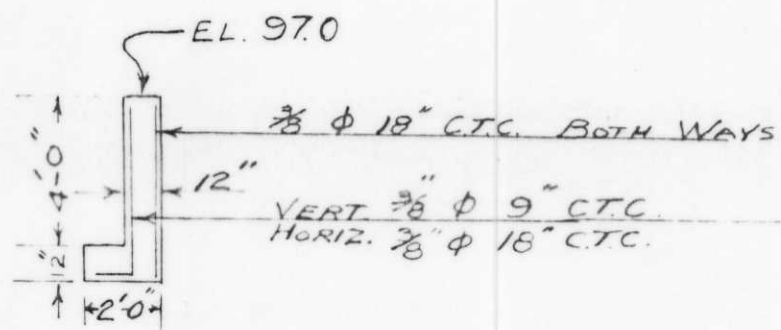 EL. 97.0
3/8 φ 18" C.T.C. BOTH WAYS
4'-0"
12"
VERT. 3/8" φ 9" C.T.C.
HORIZ. 3/8" φ 18" C.T.C.
12"
2'-0"